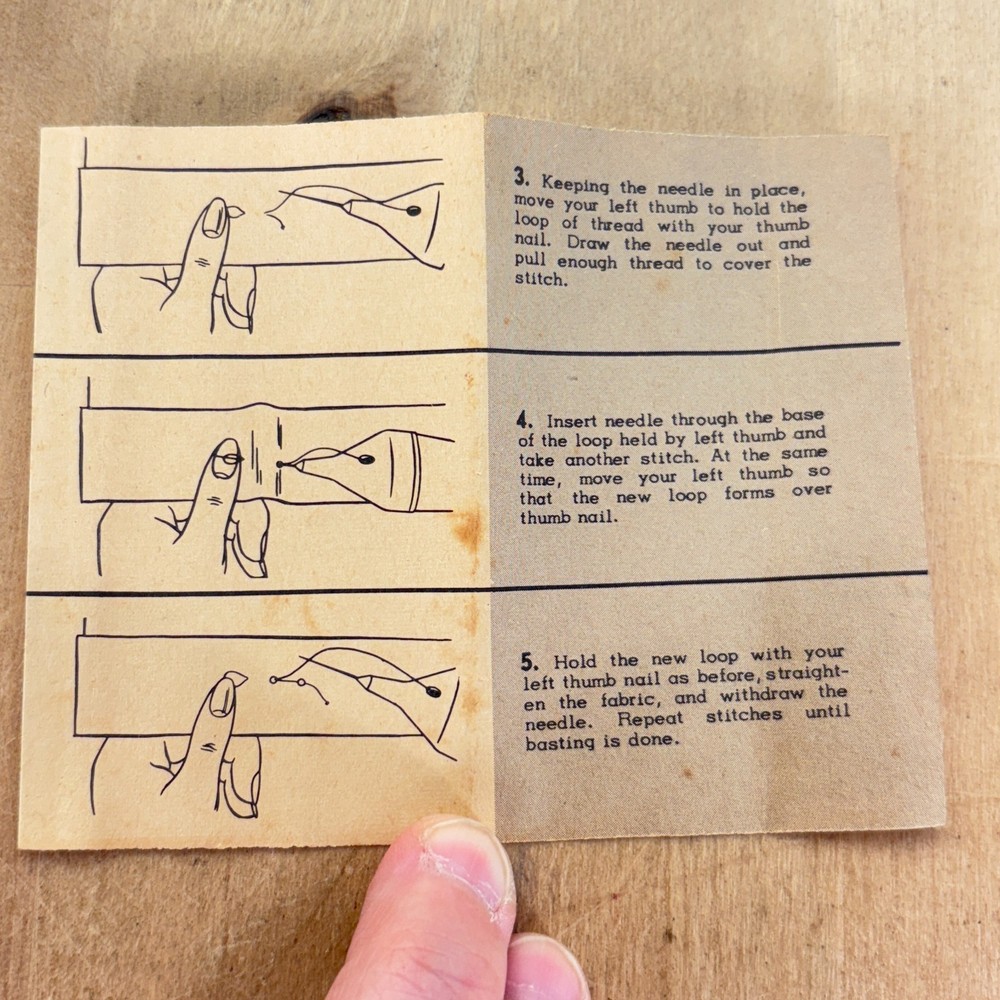 3. Keeping the needle in place,
move your left thumb to hold the
loop of thread with your thumb
nail. Draw the needle out and
pull enough thread to cover the
stitch.
4. Insert needle through the base
of the loop held by left thumb and
take another stitch. At the same
time, move your left thumb so
that the new loop forms over
thumb nail.
5. Hold the new loop with your
left thumb nail as before, straight-
en the fabric, and withdraw the
needle. Repeat stitches until
basting is done.